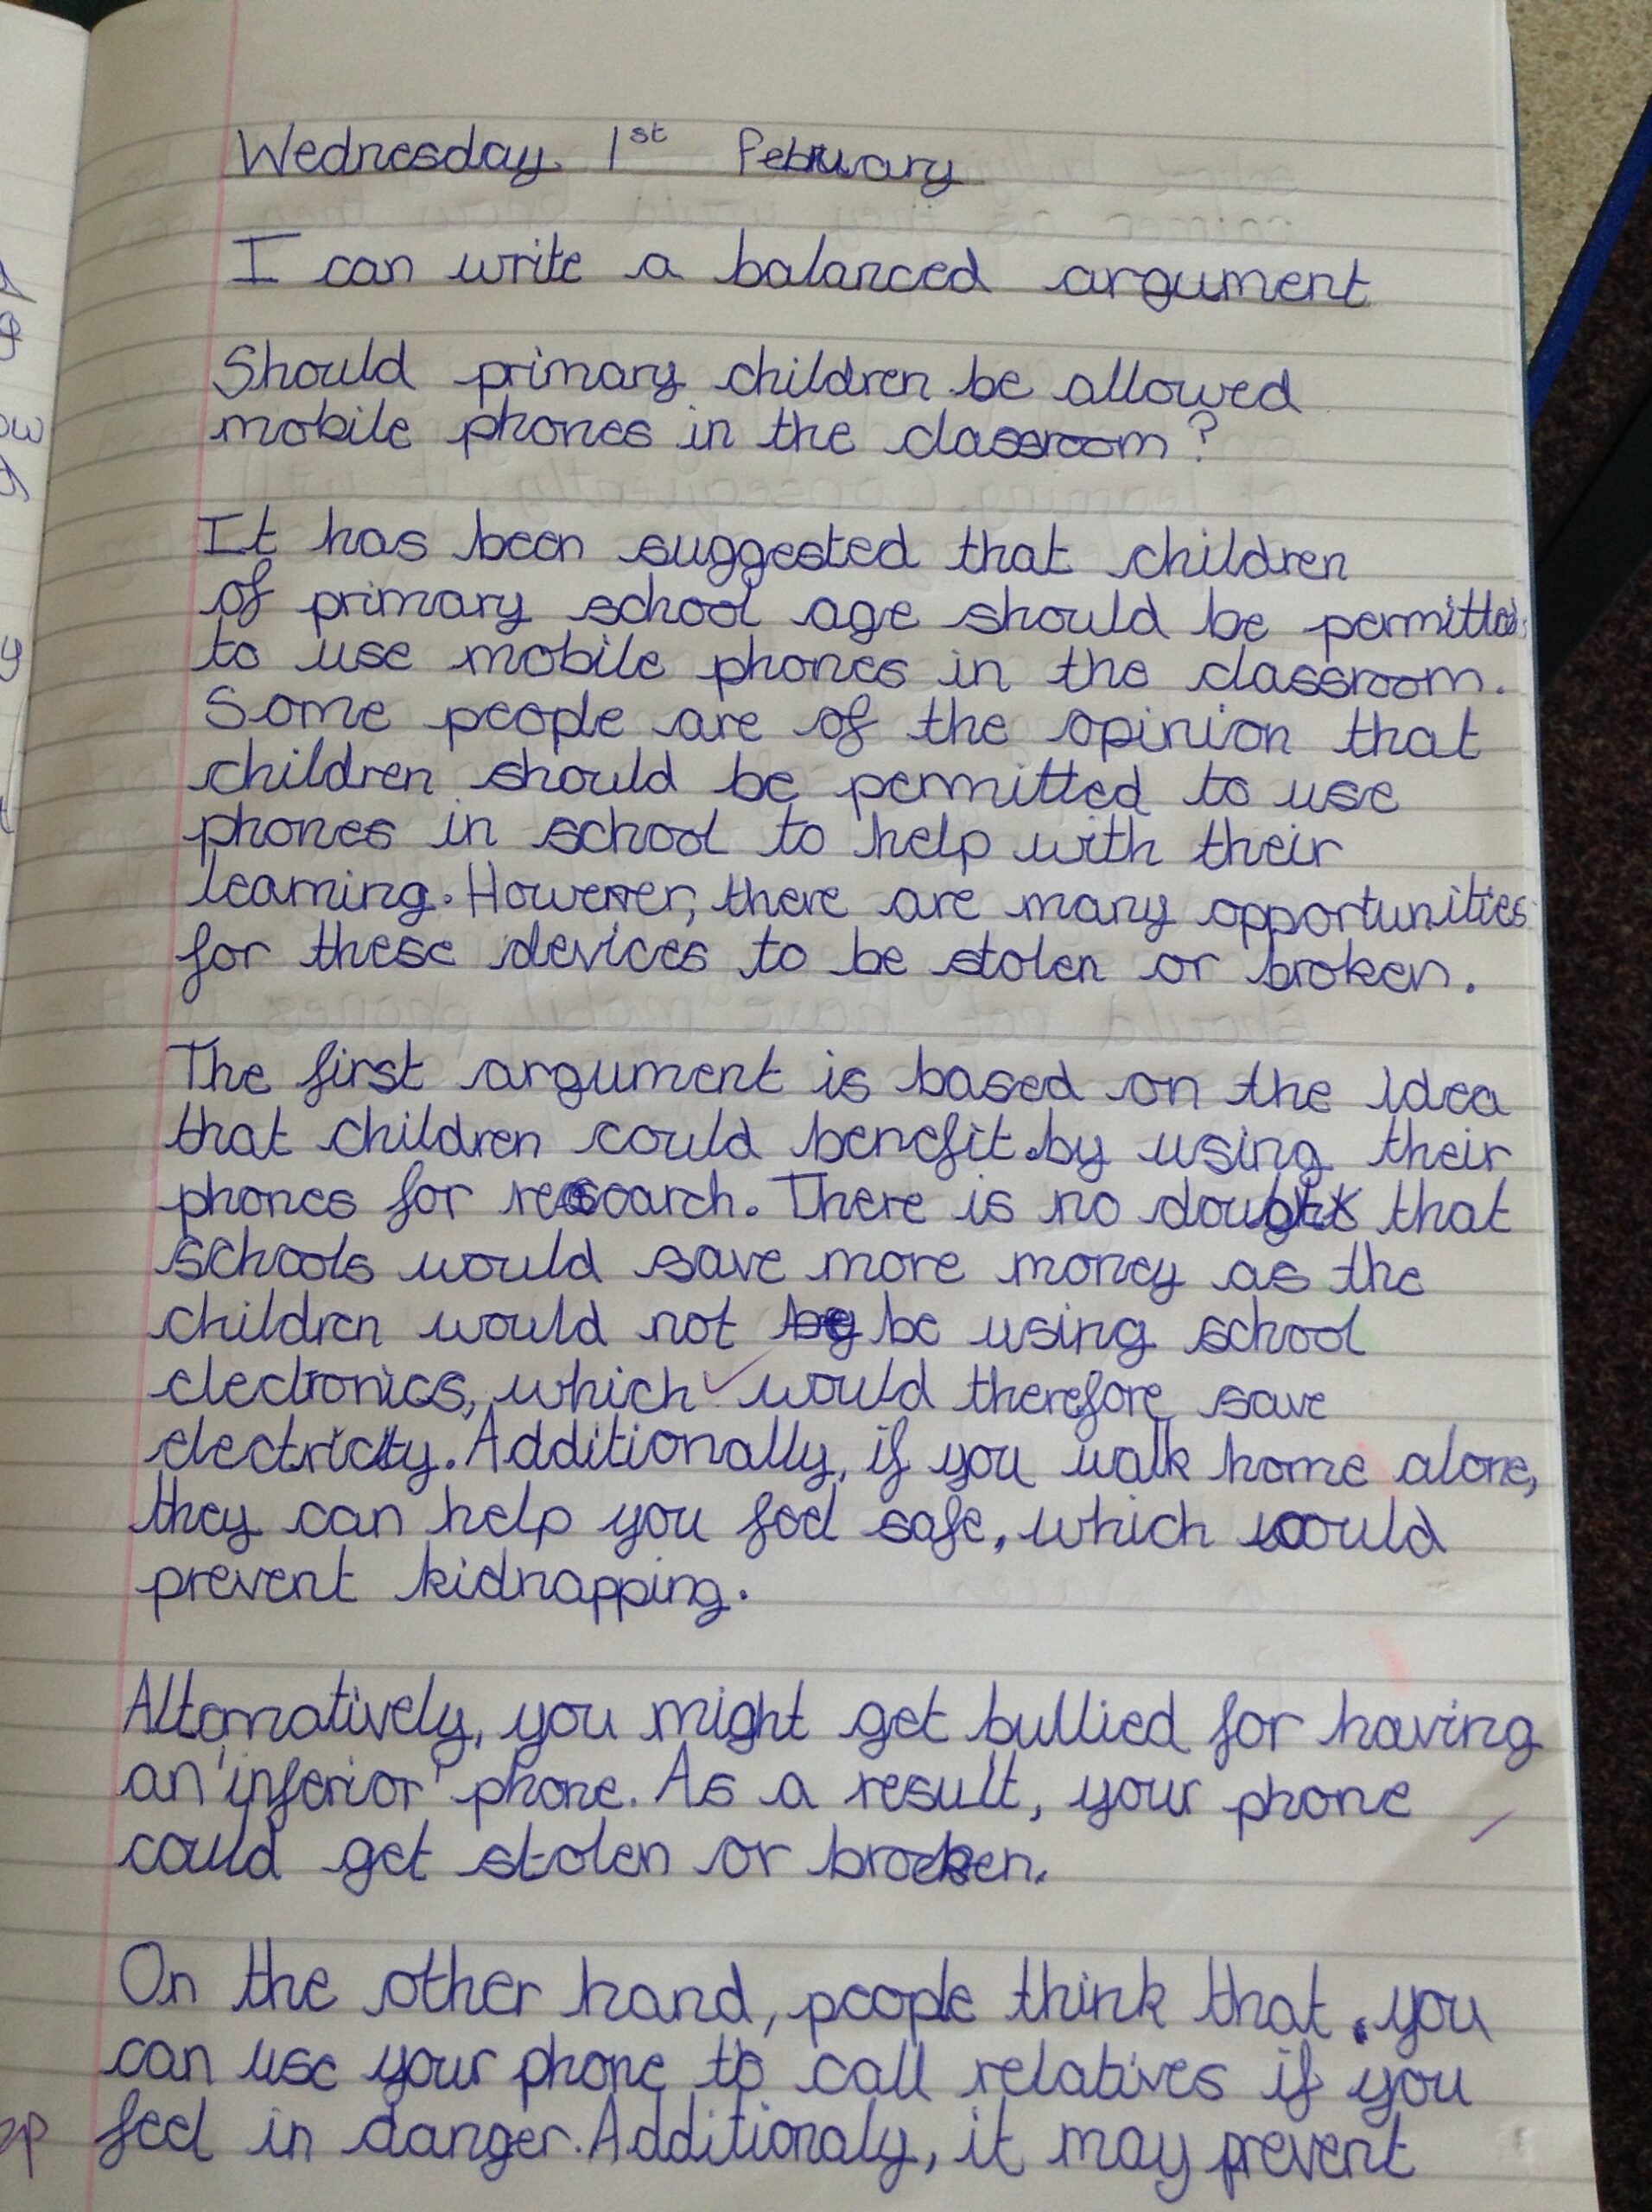 Wednesday 1st February
I can write a balanced argument
Should primary children be allowed
mobile phones in the classroom?
It has been suggested that children
of primary school age should be permitted
to use mobile phones in the classroom.
Some people are of the opinion that
children should be permitted to use
phones in school to help with their
learning. However, there are many opportunities
for these devices to be stolen or broken.
The first argument is based on the idea
that children could benefit by using their
phones for research. There is no doubt that
schools would save more money as the
children would not be using school
electronics, which would therefore save
electricity. Additionally, if you walk home alone,
they can help you feel safe, which would
prevent kidnapping.
Alternatively, you might get bullied for having
an 'inferior' phone. As a result, your phone
could get stolen or broken.
On the other hand, people think that you
can use your phone to call relatives if you
feel in danger. Additionaly, it may prevent